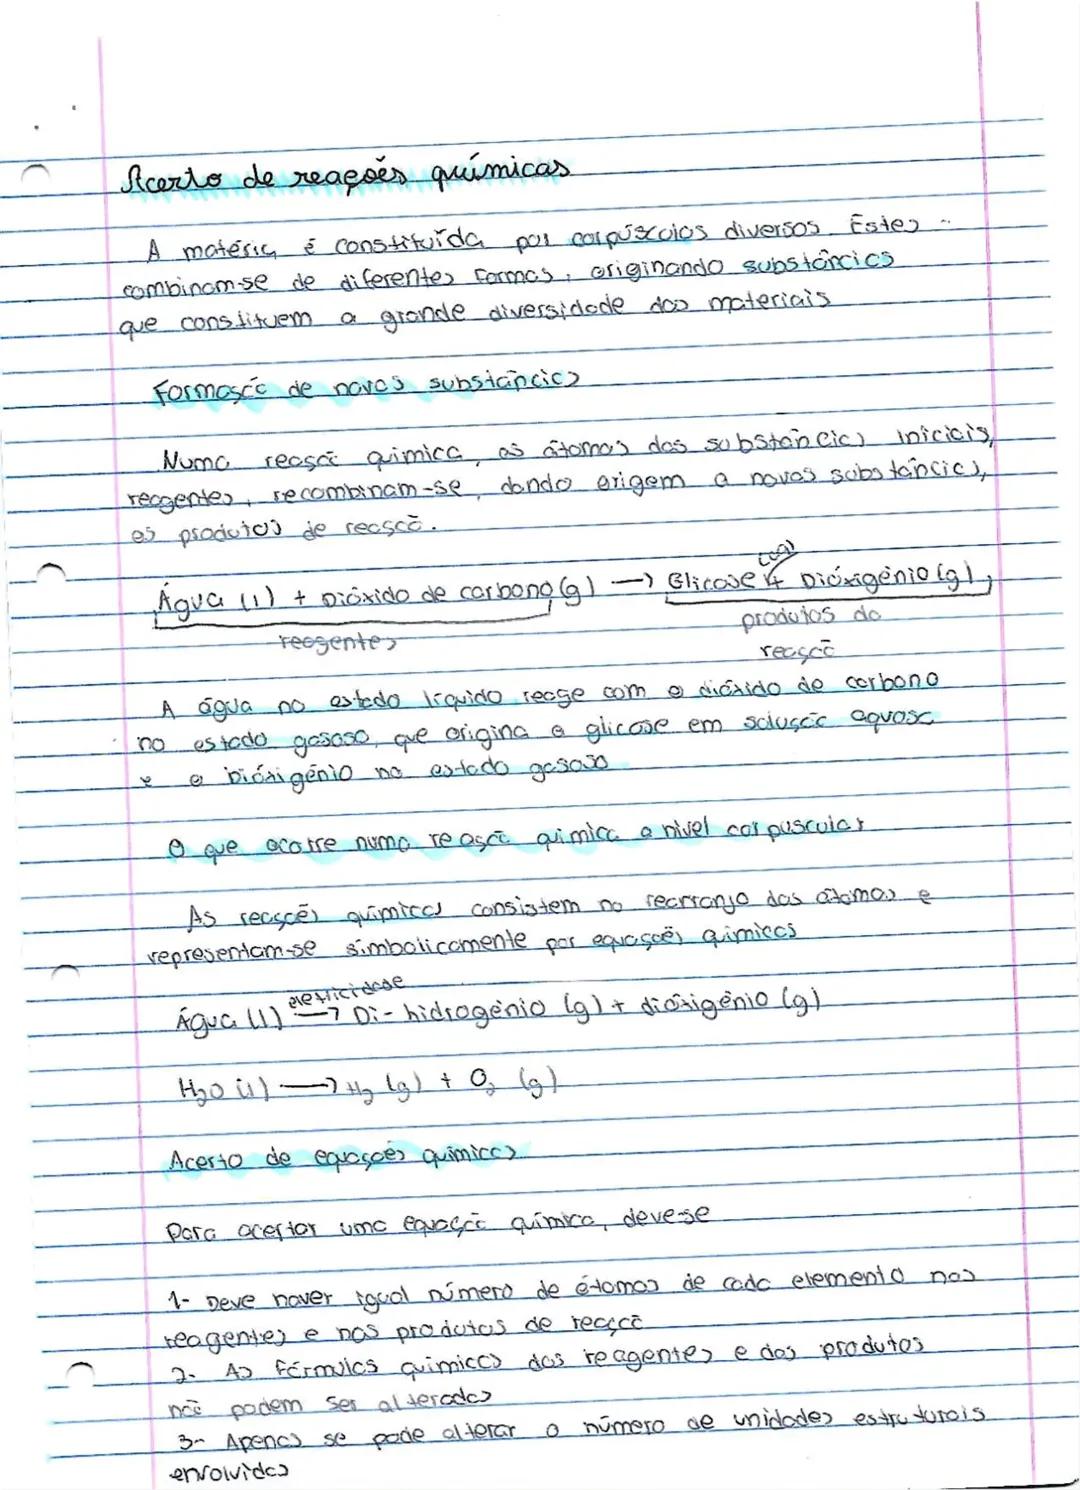 Acerto de reações químicas
A matéria é constituída por corpúsculos diversos. Estes
combinam-se de diferentes formas, originando substâncias
que constituem a grande diversidade dos materiais
Formação de novas substâncias
Numa reação química, os átomos das substâncias iniciais,
reagentes, recombinam-se, dando origem a novas substâncias,
os produtos de reação.
(aq)
Água (l) + Dióxido de carbono (g) → Glicose + Dióxigénio (g)
reagentes
produtos da
reação
A água no estado líquido reage com o dióxido de carbono
no estado gasoso, que origina a glicose em solução aquosa
e o Dióxigénio no estado gasoso
O que ocorre numa reação química a nível corpuscular
As reações químicas consistem no rearranjo dos átomos e
representam-se simbolicamente por equações químicas
eletricidade
Água (l) → Di-hidrogénio (g) + dióxigénio (g)
H₂O (l) → H₂ (g) + O₂ (g)
Acerto de equações químicas
Para acertar uma equação química, deve-se
1- Deve haver igual número de átomos de cada elemento nos
reagentes e nos produtos de reação
2- As fórmulas químicas dos reagentes e dos produtos
não podem ser alteradas
3- Apenas se pode alterar o número de unidades estruturais
envolvidas